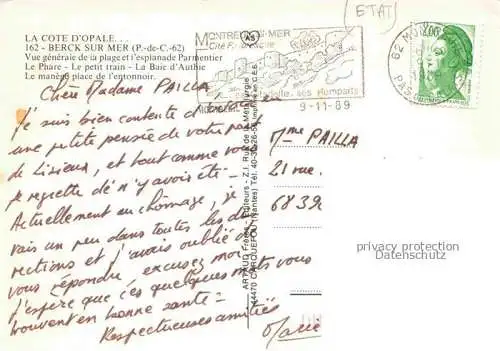 LA COTE D'OPALE. . .
162 - BERCK SUR MER (P.-de-C.-62)
Vue générale de la plage et l'esplanade Parmentier
Le Phare - Le petit train - La Baie d'Authie
Le manège place de l'entonnoir.
Chère Madame PAILLA
Je suis bien contente d'
une petite pensée de votre part
de Lisieux, et tout comme vous
je regrette de n'y avoir été -
Actuellement en chômage, je
vais un peu dans toutes les di-
rections et j'avais oublié de
vous répondre, excusez moi
J'espère que ces quelques mots vous
trouvent en bonne santé -
Respectueuses amitiés
Marie
ARTAUD Frères - Éditeurs - Z.I. Rue de la Métallurgie
44470 CARQUEFOU (Nantes) Tél. 40-30-26-56 Imprimé en C.E.E.
AS
[ETAT]
MONTREUIL-S-MER
Cité Fortifiée
Visite ses Remparts
9-11-89
62 MONTREUIL-S-MER
PAS
2,00
Mme PAILLA
21 rue
6839
privacy protection
Datenschutz